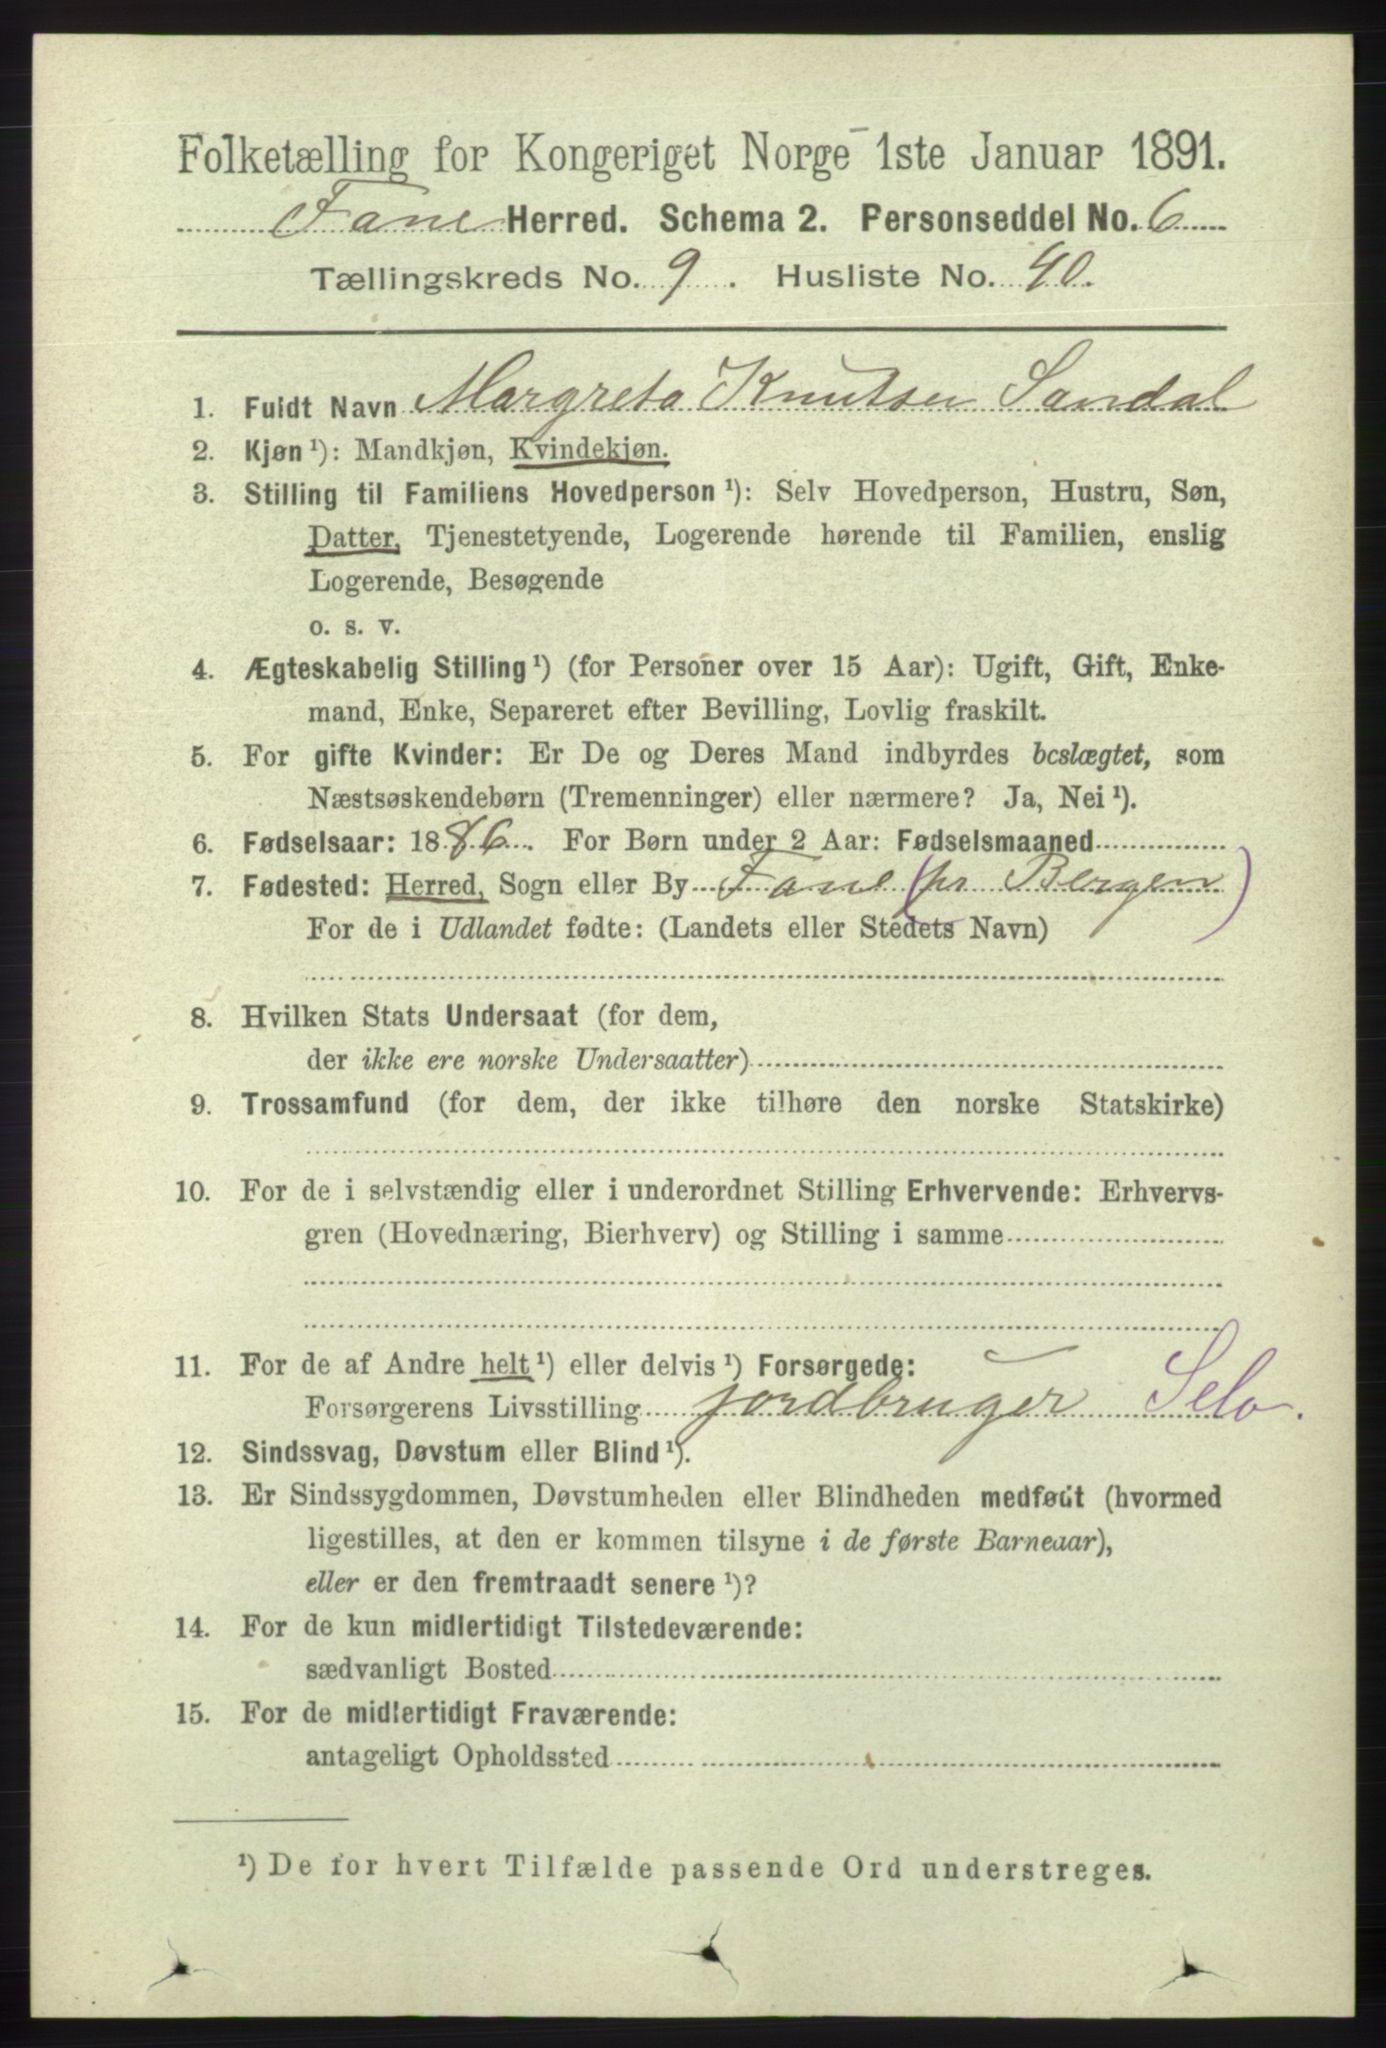 Folketælling for Kongeriget Norge 1ste Januar 1891.
Fane Herred. Schema 2. Personseddel No. 6
Tællingskreds No. 9. Husliste No. 40.
1. Fuldt Navn Margreta Knutsen Sandal
2. Kjøn ¹): Mandkjøn, Kvindekjøn.
3. Stilling til Familiens Hovedperson ¹): Selv Hovedperson, Hustru, Søn,
Datter, Tjenestetyende, Logerende hørende til Familien, enslig
Logerende, Besøgende
o. s. v.
4. Ægteskabelig Stilling ¹) (for Personer over 15 Aar): Ugift, Gift, Enke-
mand, Enke, Separeret efter Bevilling, Lovlig fraskilt.
5. For gifte Kvinder: Er De og Deres Mand indbyrdes beslægtet, som
Næstsøskendebørn (Tremenninger) eller nærmere? Ja, Nei ¹).
6. Fødselsaar: 1886. For Børn under 2 Aar: Fødselsmaaned
7. Fødested: Herred, Sogn eller By Fane (pr Bergen)
For de i Udlandet fødte: (Landets eller Stedets Navn)
8. Hvilken Stats Undersaat (for dem,
der ikke ere norske Undersaatter)
9. Trossamfund (for dem, der ikke tilhøre den norske Statskirke)
10. For de i selvstændig eller i underordnet Stilling Erhvervende: Erhvervs-
gren (Hovednæring, Bierhverv) og Stilling i samme
11. For de af Andre helt ¹) eller delvis ¹) Forsørgede:
Forsørgerens Livsstilling jordbruger Selv.
12. Sindssvag, Døvstum eller Blind ¹).
13. Er Sindssygdommen, Døvstumheden eller Blindheden medfødt (hvormed
ligestilles, at den er kommen tilsyne i de første Barneaar),
eller er den fremtraadt senere ¹)?
14. For de kun midlertidigt Tilstedeværende:
sædvanligt Bosted
15. For de midlertidigt Fraværende:
antageligt Opholdssted
¹) De for hvert Tilfælde passende Ord understreges.